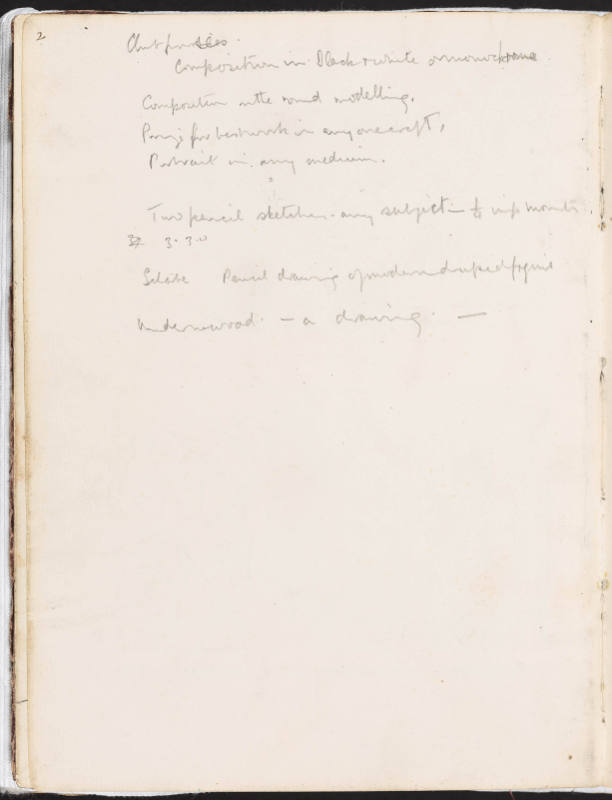 2
Club prizes.
Composition in Black & white or monochrome
Composition in the round modelling.
Prize for best work in any one craft,
Portrait in any medium.
Two pencil sketches - any subject - imp mounts
3. 3. 0
Pencil drawing of modern draped figure
Underwood - a drawing. -